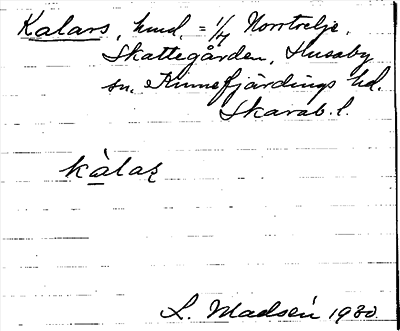 Kalars, hmd. = 1/4 Norrtrelje,
Skattegården, Husaby
sn. Kinnefjärdings hd.
Skarab. l.
kàlaʂ
L. Madsén 1930